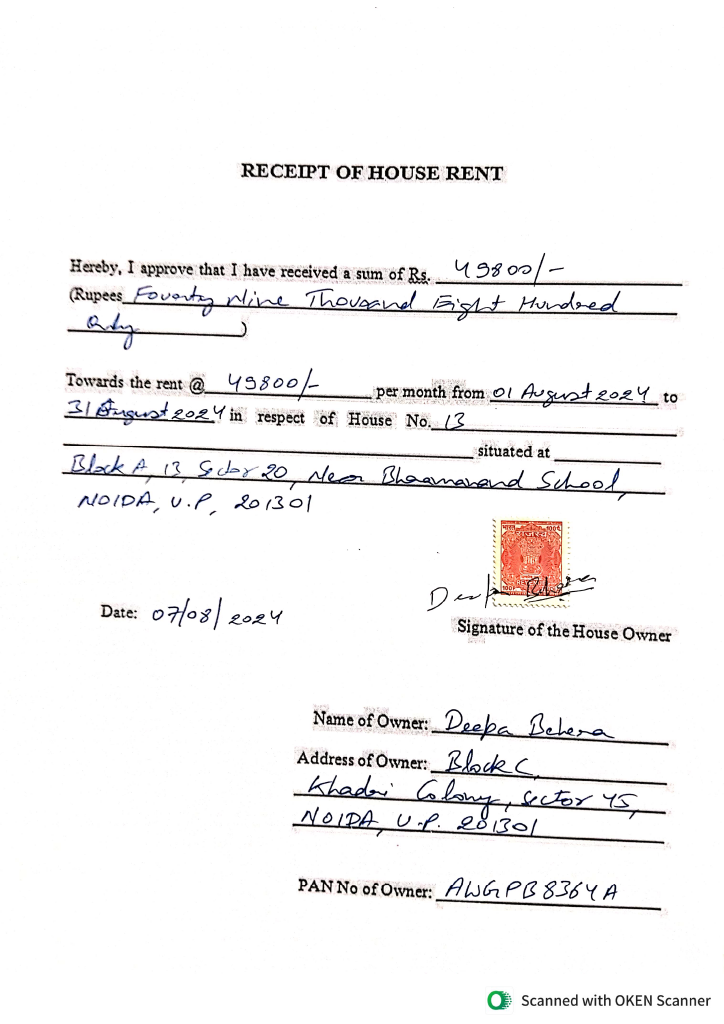 RECEIPT OF HOUSE RENT
Hereby, I approve that I have received a sum of Rs. 49800/-
(Rupees Fouorty Nine Thousand Eight Hundred
Only )
Towards the rent @ 49800/- per month from 01 August 2024 to
31 August 2024 in respect of House No. 13
situated at
Block A, 13, Sector 20, Near School,
NOIDA, U.P, 201301
भारत 100पै
Deepa Behera
Date: 07/08/2024
Signature of the House Owner
Name of Owner: Deepa Behera
Address of Owner: Block C,
Khadri Colony, Sector 45,
NOIDA, U.P. 201301
PAN No of Owner: AWGPB8364A
Scanned with OKEN Scanner